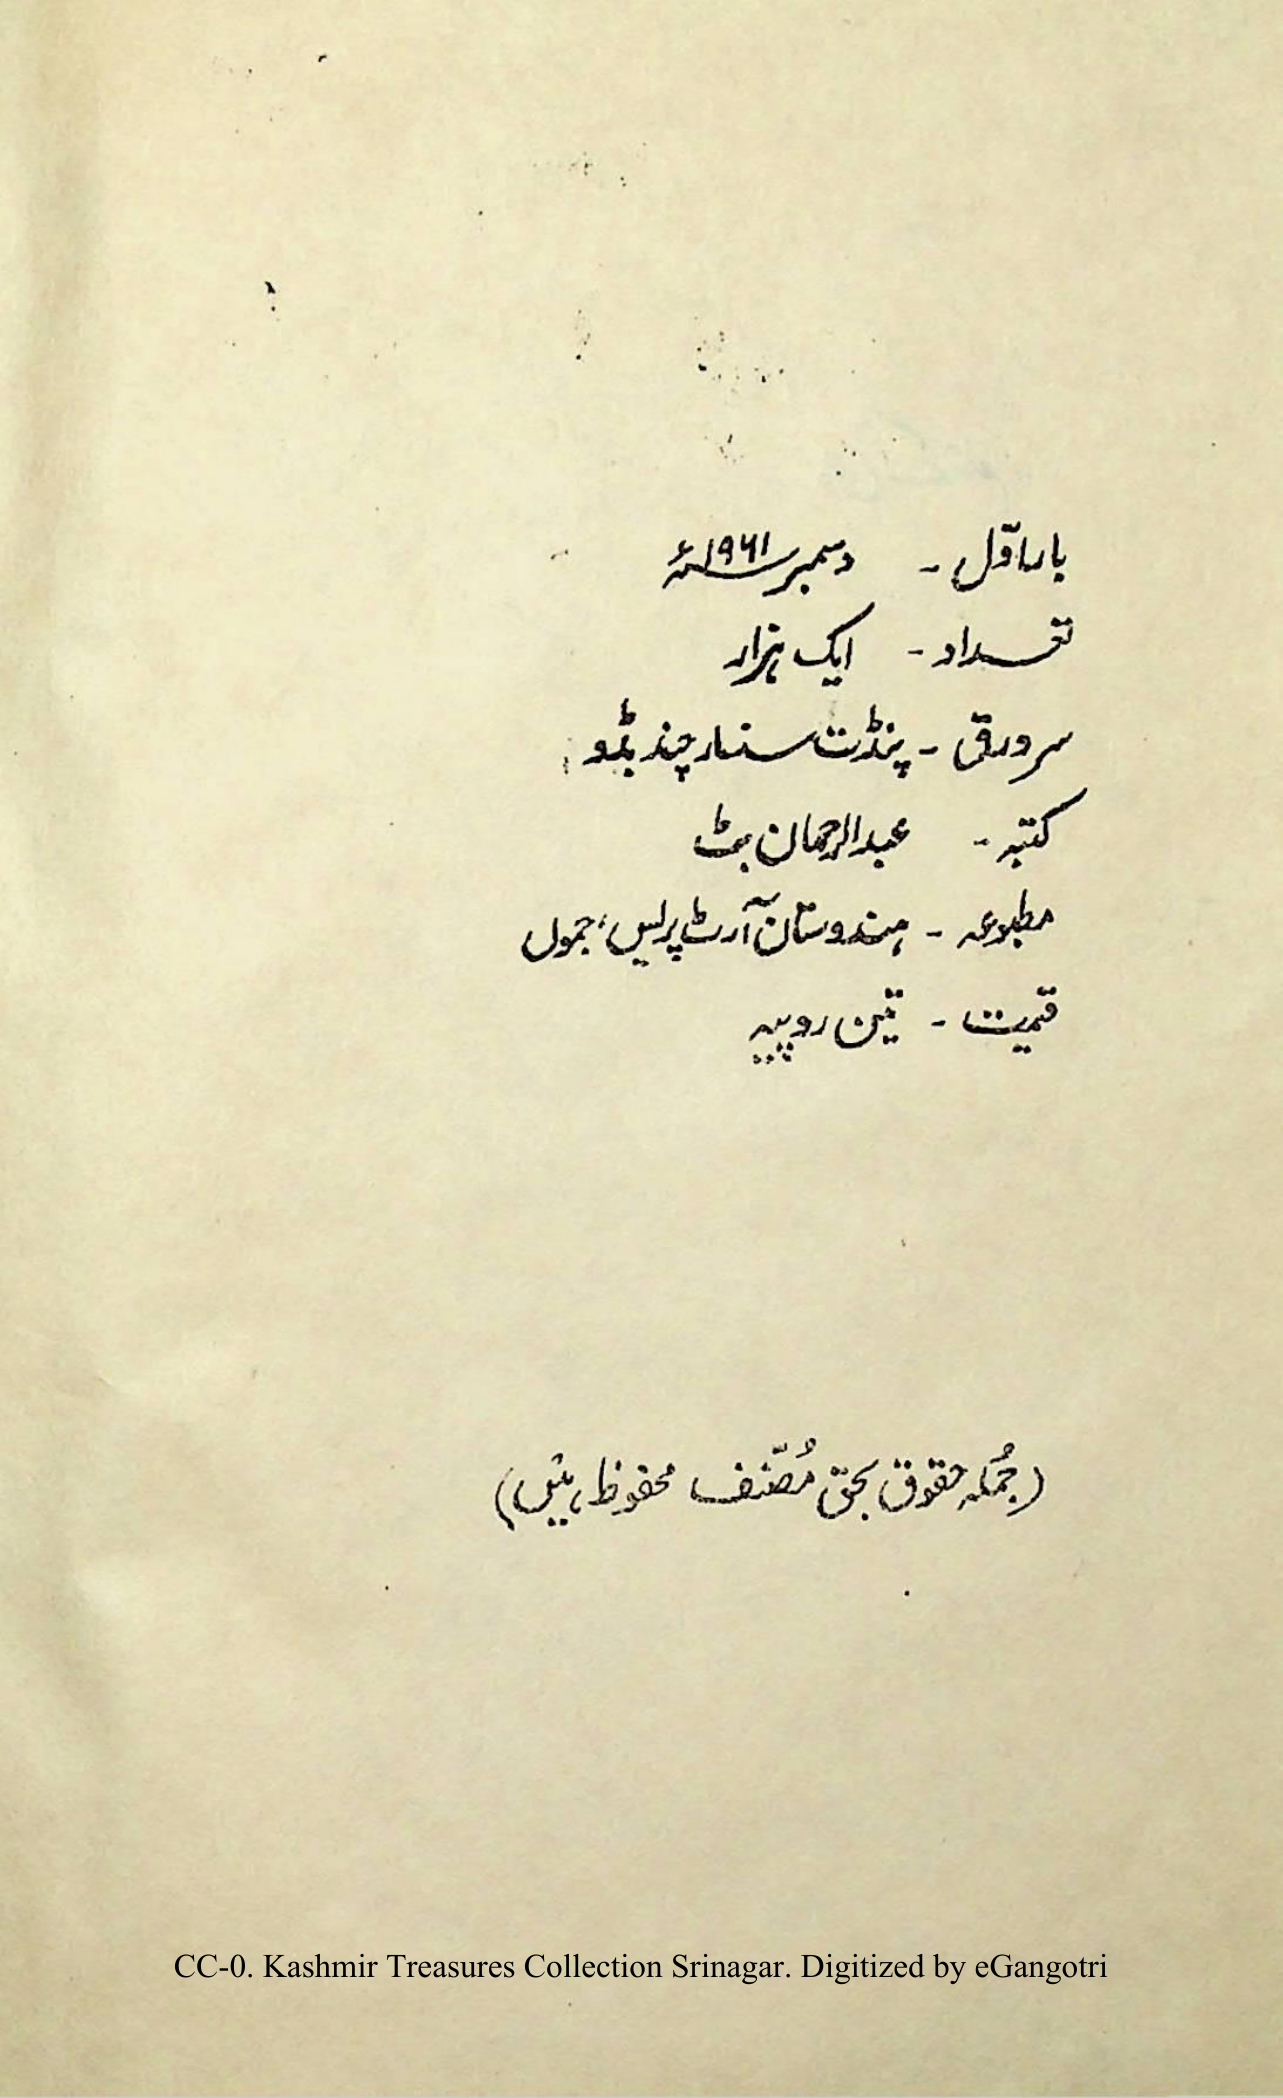 بار اوّل - دسمبر ۱۹۶۱ء
تعداد - ایک ہزار
سرورق - پنڈت سنسار چند بڈو
کتبہ - عبدالرحمان بٹ
مطبوعہ - ہندوستان آرٹ پریس، جموں
قیمت - تین روپیہ
(جُملہ حقوق بحق مُصنّف محفوظ ہیں)
CC-0. Kashmir Treasures Collection Srinagar. Digitized by eGangotri